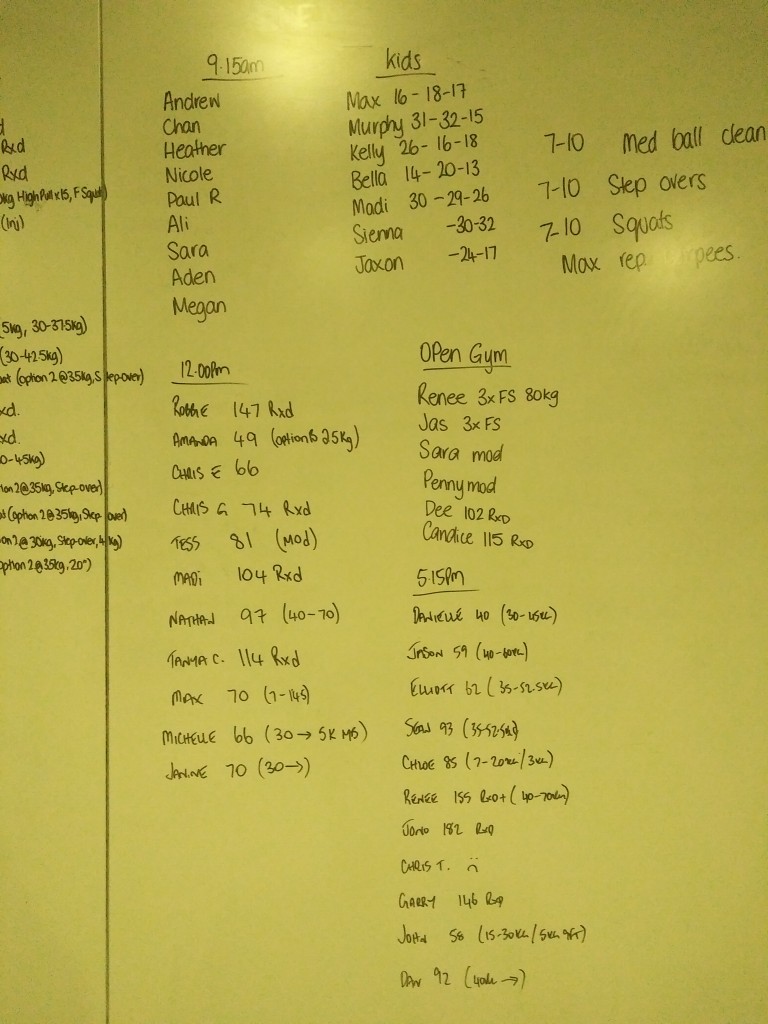 d
Rxd
Rxd
kg High Pull x15, F Squat)
(Inj)
5kg, 30-37.5kg)
(30-42.5kg)
(option 2 @ 35kg, Step-over)
xd.
xd.
0-45kg)
ion 2 @ 35kg, Step-over)
(option 2 @ 35kg, Step-over)
on 2 @ 30kg, Step-over, 4kg)
option 2 @ 35kg, 20")
9.15am
Andrew
Chan
Heather
Nicole
Paul R
Ali
Sara
Aden
Megan
Kids
Max 16-18-17
Murphy 31-32-15
Kelly 26-16-18
Bella 14-20-13
Madi 30-29-26
Sienna -30-32
Jaxon -24-17
7-10 Med ball clean
7-10 Step overs
7-10 Squats
Max rep
12.00pm
ROBBIE 147 Rxd
AMANDA 49 (option B 25kg)
CHRIS E 66
CHRIS G 74 Rxd
TESS 81 (Mod)
MADI 104 Rxd
NATHAN 97 (40-70)
TANYA C. 114 Rxd
MAX 70 (7-145)
MICHELLE 66 (30→ 5K MB)
JANINE 70 (30→)
Open Gym
Renee 3x FS 80kg
Jas 3x FS
Sara mod
Penny mod
Dee 102 RxD
Candice 115 RxD
5.15pm
DANIELLE 40 (30-
JASON 59 (40-60KG)
ELLIOTT 62 (35-52.5KG)
SEAN 93 (35-52.5KG)
CHLOE 85 (7-20KG/3KG)
RENEE 155 RxD+ (40-70KG)
JONO 182 RxD
CHRIS T. :(
GARRY 146 RxD
JOHN 58 (15-30KG/5KG 9FT)
DAN 92 (40KG →)